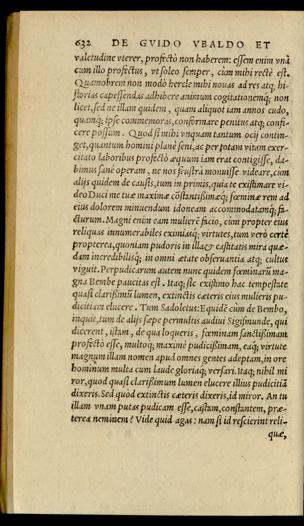 632 DE GVIDO VBALDO ET
valetudine vterer, profectò non haberem: essem enim vnà
cum illo profectus, vt soleo semper, cùm mihi rectè est.
Quamobrem non modò hercle mihi nouas ad res atq; hi-
storias capessendas adhibere animum cogitationemq; non
licet, sed ne illam quidem, quam aliquot iam annos cudo,
quamq; ipse commemoras, conformare penitus atq; confi-
cere possum. Quod si mihi vnquam tantum ocij contin-
get, quantum homini planè seni, ac per totam vitam exer-
citato laboribus profectò æquum iam erat contigisse, da-
bimus sanè operam, ne nos frustrà monuisse videare, cùm
alijs quidem de causis, tum in primis, quia te existimare vi-
deo Duci meæ tuæ maximæ cõstantißimæq́; fœminæ rem ad
eius dolorem minuendum idoneam accommodatamq́; fa-
cturum. Magni enim eam mulierē facio, cùm propter eius
reliquas innumerabiles eximiasq́; virtutes, tum verò certè
propterea, quoniam pudoris in illa & castitatis mira quæ-
dam incredibilisq́; in omni ætate obseruantia atq; cultus
viguit. Perpudicarum autem nunc quidem fœminarũ ma-
gna Bembe paucitas est. Itaq; sic existimo hac tempestate
quasi clarißimũ lumen, extinctis cæteris eius mulieris pu-
dicitiam elucere. Tum Sadoletus: Equidē cùm de Bembo,
inquit, tum de alijs sæpe permultis audiui Sigismunde, qui
dicerent, istam, de qua loqueris, fœminam sanctißimam
profectò esse, multoq́; maximè pudicißimam, eaq́; virtute
magnum illam nomen apud omnes gentes adeptam, in ore
hominum multa cum laude gloriaq́; versari. Itaq; nihil mi
ror, quod quasi clarißimum lumen elucere illius pudicitiã
dixeris. Sed quòd extinctis cæteris dixeris, id miror. An tu
illam vnam putas pudicam esse, castam, constantem, præ-
terea neminem? Vide quid agas: nam si id rescierint reli-
quæ,